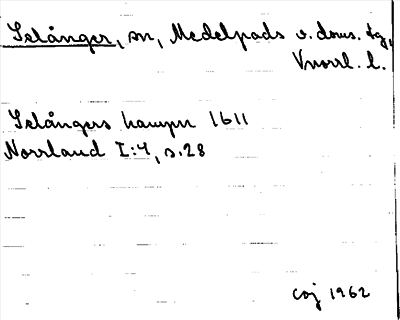 Selånger, sn, Medelpads v. doms. tg,
Vnorrl. l.
Selångers hampn 1611
Norrland I:4, s. 28
coj 1962